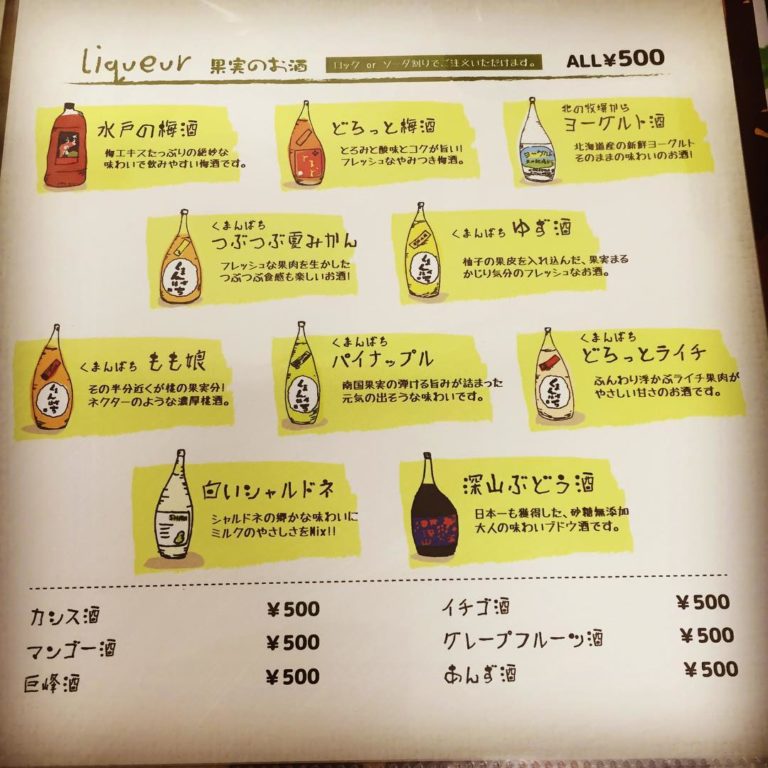 liqueur 果実のお酒 ロック or ソーダ割りでご注文いただけます。 ALL¥500
水戸の梅酒
梅エキスたっぷりの絶妙な
味わいで飲みやすい梅酒です。
どろっと梅酒
とろみと酸味とコクが旨い!
フレッシュなやみつき梅酒。
北の牧場から
ヨーグルト酒
北海道産の新鮮ヨーグルト
そのままの味わいのお酒!
くまんばち
つぶつぶ夏みかん
フレッシュな果肉を生かした
つぶつぶ食感も楽しいお酒!
くまんばち ゆず酒
柚子の果皮を入れ込んだ、果実まる
かじり気分のフレッシュなお酒。
くまんばち もも娘
その半分近くが桃の果実分!
ネクターのような濃厚桃酒。
くまんばち
パイナップル
南国果実の弾ける旨みが詰まった
元気の出そうな味わいです。
くまんばち
どろっとライチ
ふんわり浮かぶライチ果肉が
やさしい甘さのお酒です。
白いシャルドネ
シャルドネの郷かな味わいに
ミルクのやさしさをMix!!
深山ぶどう酒
日本一も獲得した、砂糖無添加
大人の味わいブドウ酒です。
カシス酒 ¥500
イチゴ酒 ¥500
マンゴー酒 ¥500
グレープフルーツ酒 ¥500
巨峰酒 ¥500
あんず酒 ¥500